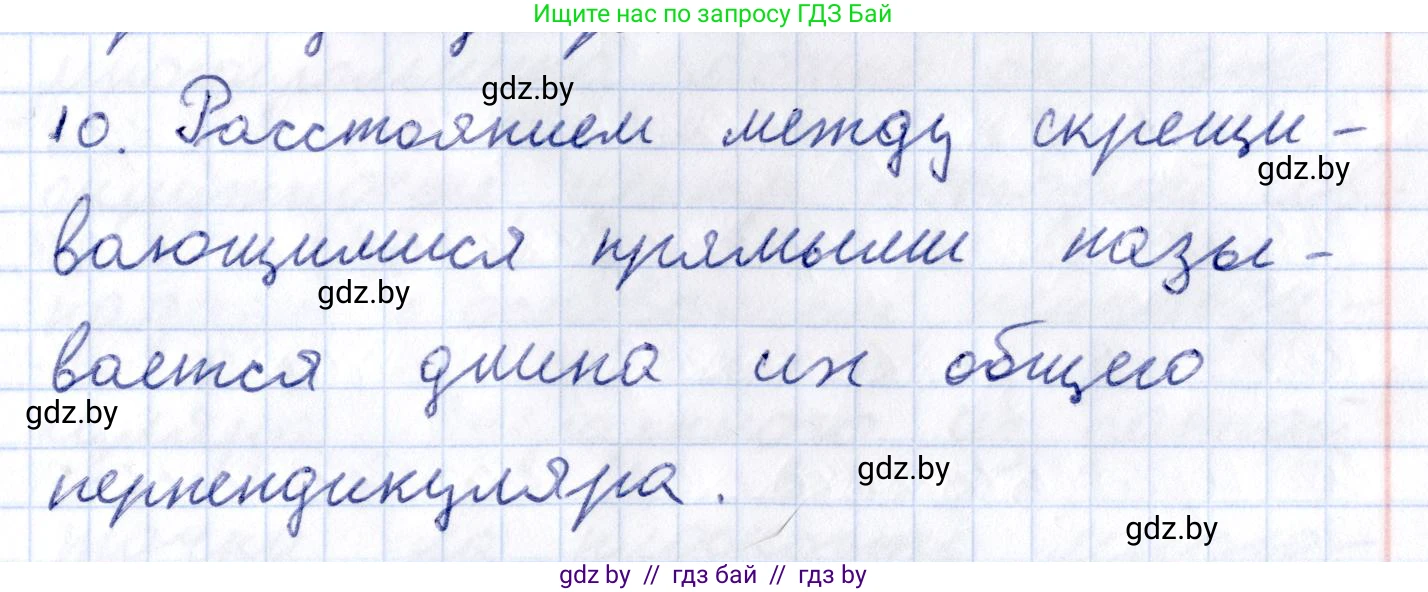 Ищите нас по запросу ГДЗ Бай
gdz.by
10. Расстоянием между скрещи-
gdz.by
вающимися прямыми назы-
gdz.by
вается длина их общего
gdz.by
перпендикуляра.
gdz.by
gdz.by
gdz by // гдз бай // гдз by